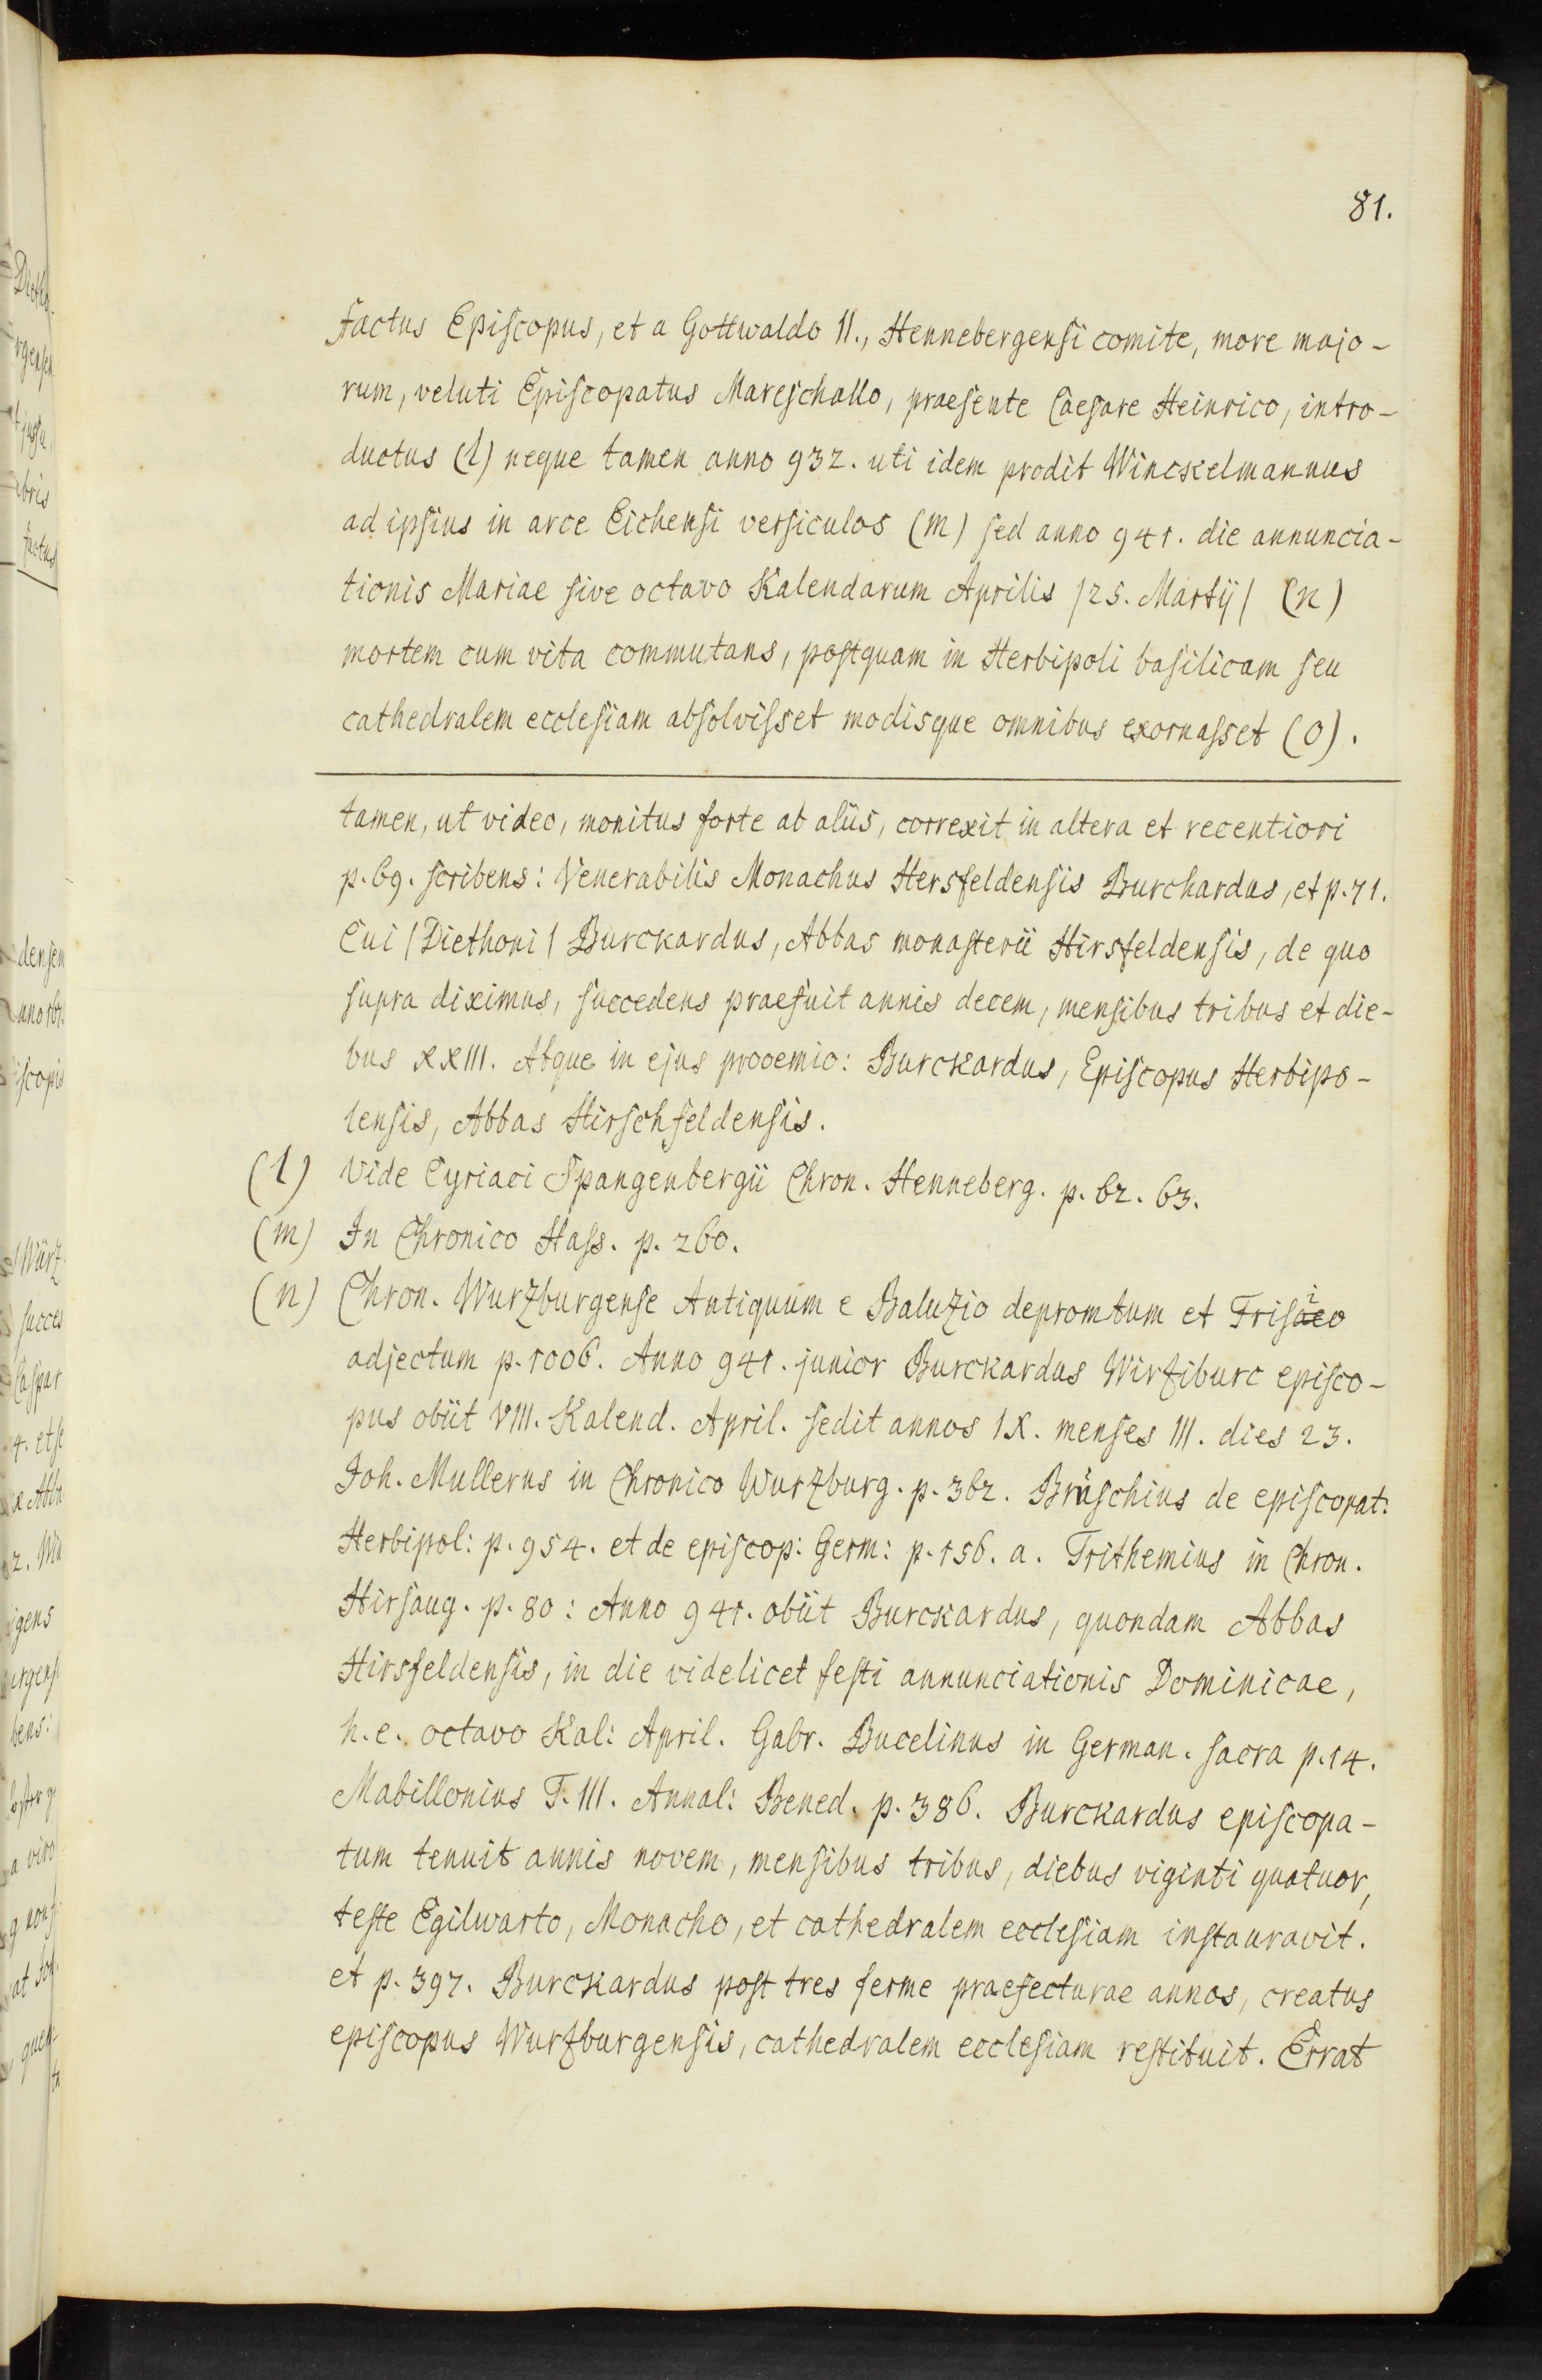 81.
factus Episcopus, et a Gottwaldo II., Hennebergensi comite, more majo-
rum, veluti Episcopatus Mareschallo, praesente Caesare Heinrico, intro-
ductus (l) neque tamen anno 932. uti idem prodit Winckelmannus
ad ipsius in arce Eichensi versiculos (m) sed anno 941. die annuncia-
tionis Mariae sive octavo Kalendarum Aprilis /25. Martij/ (n)
mortem cum vita commutans, postquam in Herbipoli basilicam seu
cathedralem ecclesiam absolvisset modisque omnibus exornasset (o).
tamen, ut video, monitus forte ab aliis, correxit in altera et recentiori
p. 69. scribens: Venerabilis Monachus Hersfeldensis Burchardus, et p. 71.
Cui /Diethoni/ Burckardus, Abbas monasterii Hirsfeldensis, de quo
supra diximus, succedens praefuit annis decem, mensibus tribus et die-
bus XXIII. Atque in ejus prooemio: Burckardus, Episcopus Herbipo-
lensis, Abbas Hirschfeldensis.
(l) Vide Cyriaci Spangenbergii Chron. Henneberg. p. 62. 63.
(m) In Chronico Hass. p. 260.
(n) Chron. Wurzburgense Antiquum e Baluzio depromtum et
adjectum p. 1006. Anno 941. junior Burckardus Wirziburc episco-
pus obiit VIII. Kalend. April. sedit annos IX. menses III. dies 23.
Joh. Mullerus in Chronico Wurzburg. p. 362. Bruschius de episcopat:
Herbipol: p. 954. et de episcop: Germ: p. 156. a. Trithemius in Chron.
Hirsaug. p. 80: Anno 941. obiit Burckardus, quondam Abbas
Hirsfeldensis, in die videlicet festi annunciationis Dominicae,
h. e. octavo Kal: April. Gabr. Bucelinus in German. sacra p. 14.
Mabillonius T. III. Annal: Bened. p. 386. Burckardus episcopa-
tum tenuit annis novem, mensibus tribus, diebus viginti quatuor,
teste Egilwarto, Monacho, et cathedralem ecclesiam instauravit.
et p. 397. Burckardus post tres ferme praefecturae annos, creatus
episcopus Wurzburgensis, cathedralem ecclesiam restituit. Errat